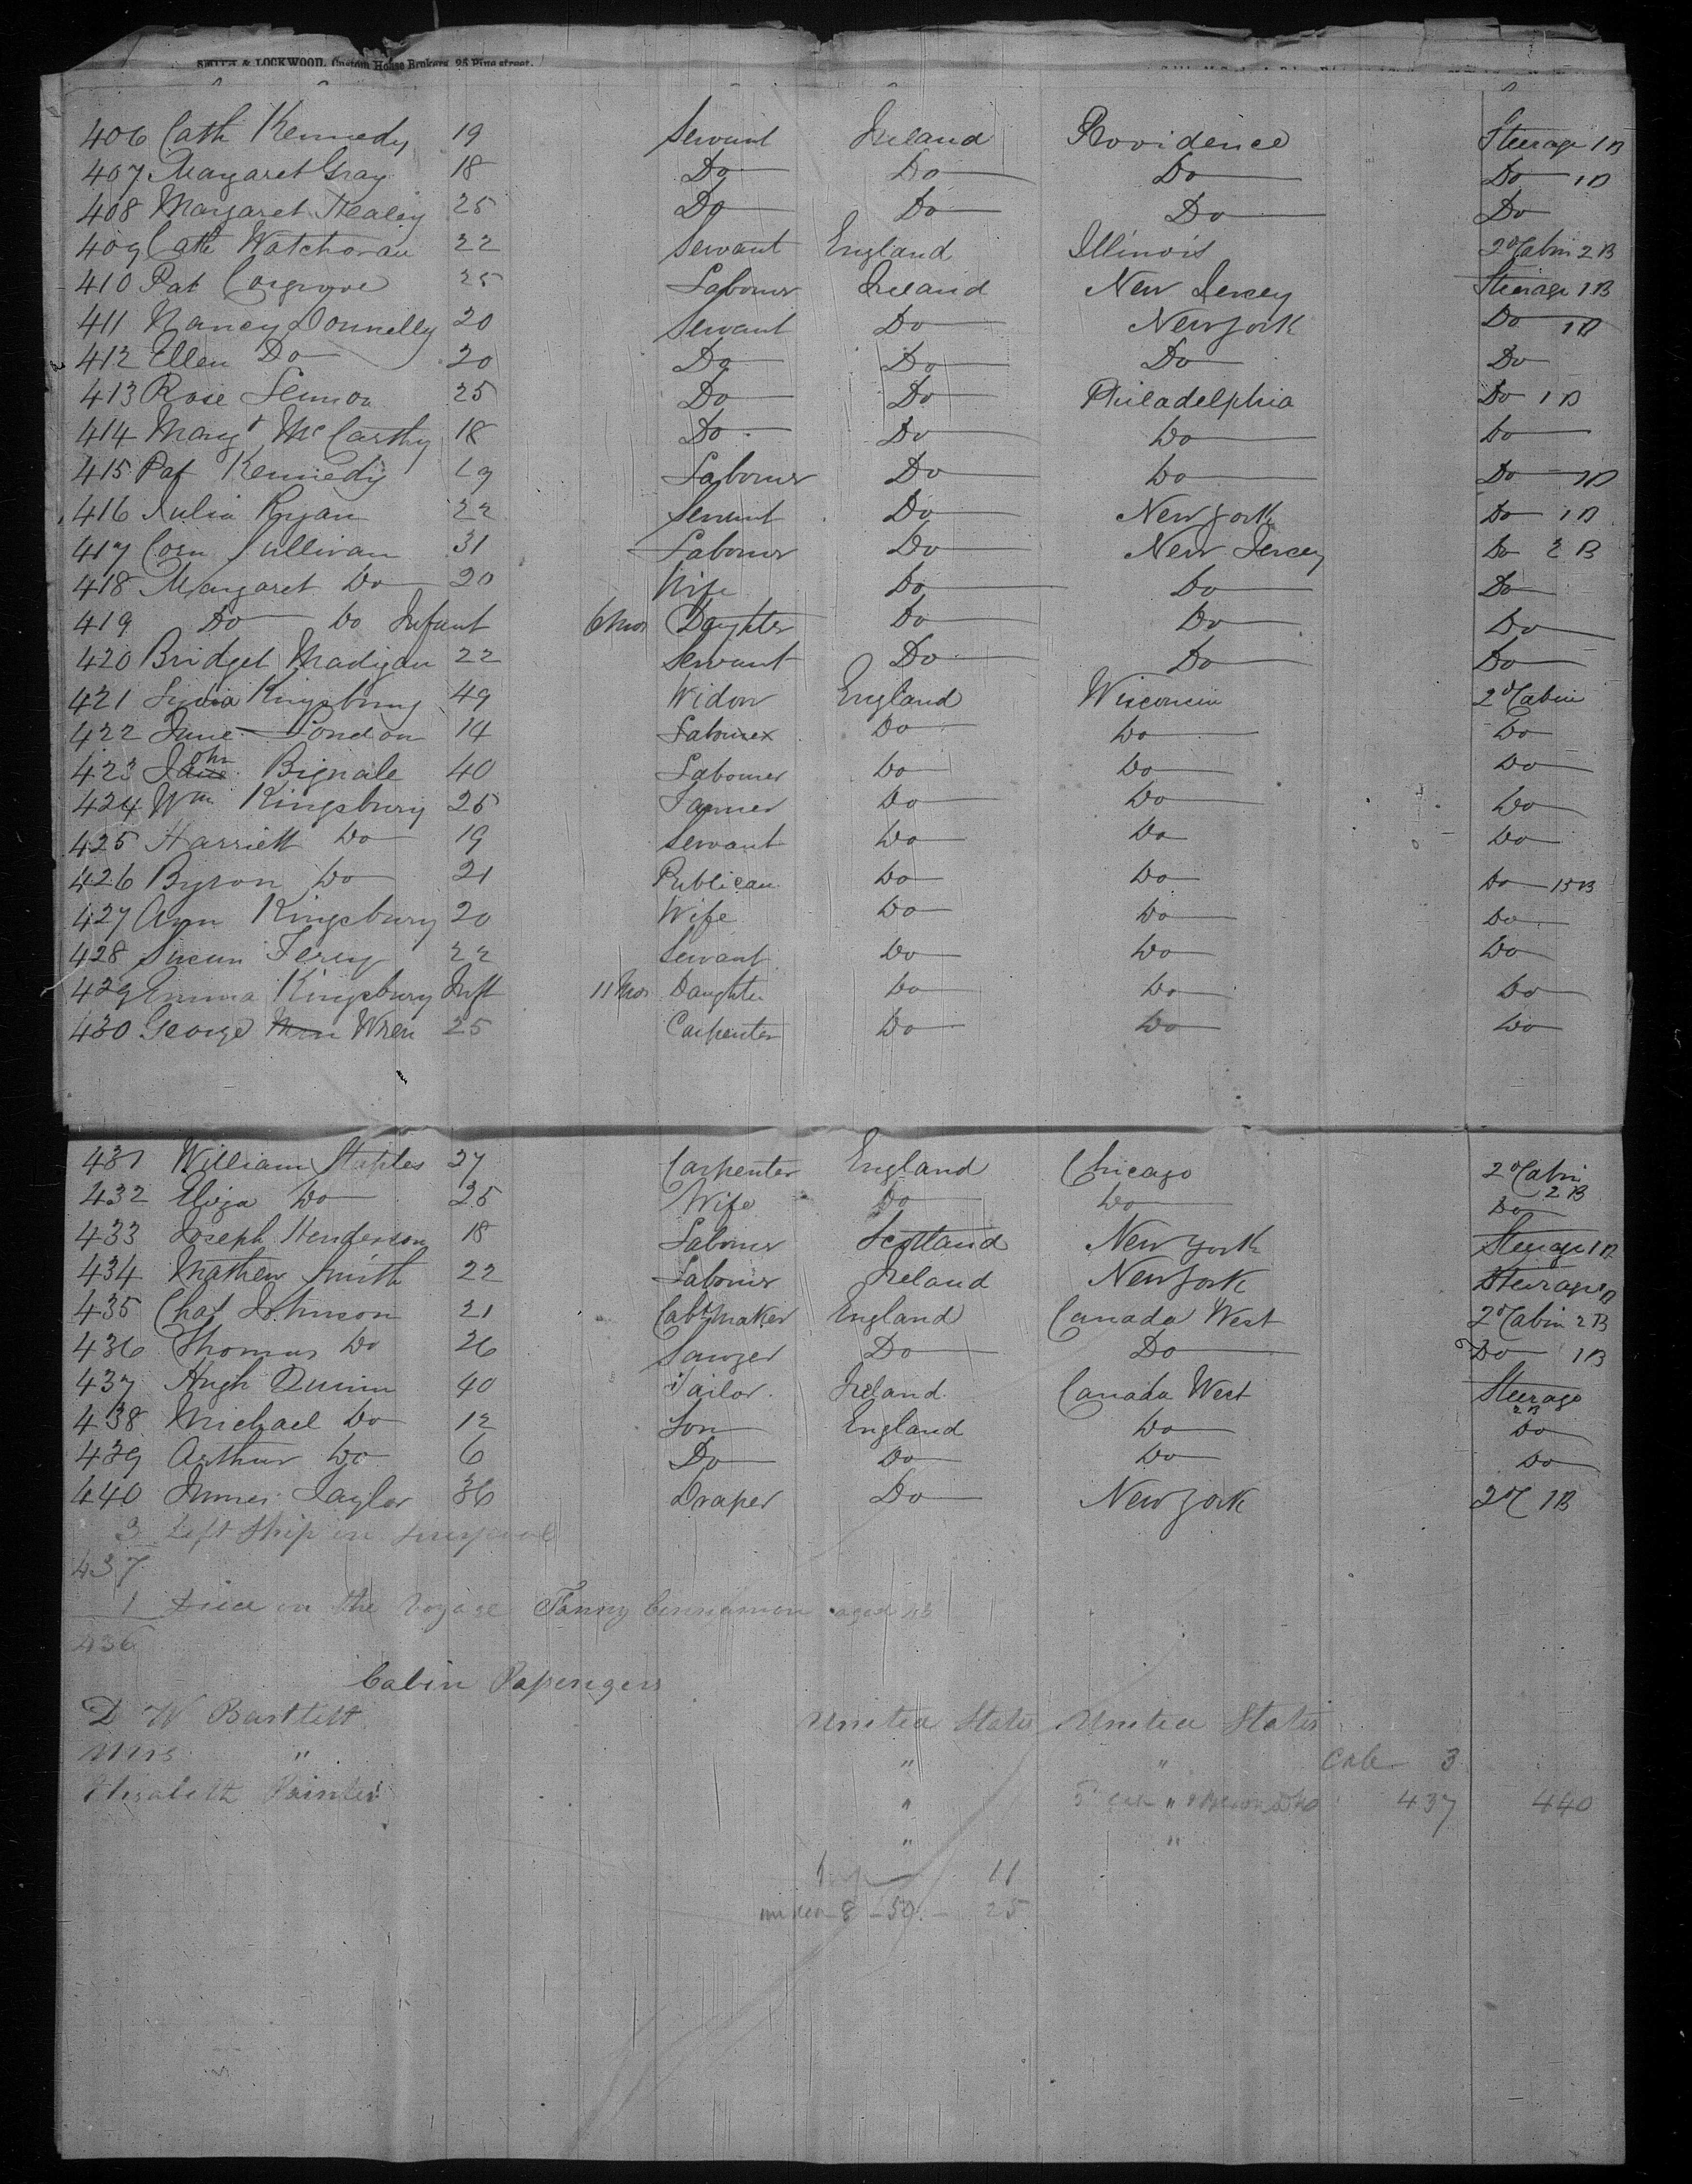 SMITH & LOCKWOOD, Custom House Brokers, 25 Pine street.
406 Cath Kennedy 19 Servant Ireland Providence Steerage 1 B
407 Margaret Gray 18 Do Do Do Do 1 B
408 Margaret Healey 25 Do Do Do Do
409 Cath Watchorau 22 Servant England Illinois 2d Cabin 2 B
410 Pat Cosgrove 25 Labourer Ireland New Jersey Steerage 1 B
411 Nancy Donnelly 20 Servant Do New York Do 1 B
412 Ellen Do 20 Do Do Do Do
413 Rose Lennon 25 Do Do Philadelphia Do 1 B
414 Margt McCarthy 18 Do Do Do Do
415 Pat Kennedy 19 Labourer Do Do Do 1 B
416 Julia Ryan 22 Servant Do New York Do 1 B
417 Corn Sullivan 31 Labourer Do New Jersey Do 2 B
418 Margaret Do 20 Wife Do Do Do
419 Do Do Infant 6 Mos Daughter Do Do Do
420 Bridget Madigan 22 Servant Do Do Do
421 Kingsbury 49 Widow England Wisconsin 2d Cabin
422 Jane London 14 Labourer Do Do Do
423 John Bignale 40 Labourer Do Do Do
424 Wm Kingsbury 25 Farmer Do Do Do
425 Harriett Do 19 Servant Do Do Do
426 Byron Do 21 Publican Do Do Do 15 B
427 Ann Kingsbury 20 Wife Do Do Do
428 Susan Ferey 22 Servant Do Do Do
429 Emma Kingsbury Inft 11 Mos Daughter Do Do Do
430 George Wren 25 Carpenter Do Do Do
431 William Staples 27 Carpenter England Chicago 2d Cabin 2 B
432 Eliza Do 25 Wife Do Do Do
433 Joseph Henderson 18 Labourer Scotland New York Steerage 1 B
434 Mathew Smith 22 Labourer Ireland New York Steerage 1 B
435 Chas Johnson 21 Cabtmaker England Canada West 2d Cabin 2 B
436 Thomas Do 26 Sawyer Do Do Do 1 B
437 Hugh Quinn 40 Tailor Ireland Canada West Steerage 2 B
438 Michael Do 12 Son England Do Do
439 Arthur Do 6 Do Do Do Do
440 James Taylor 36 Draper Do New York 2 C 1 B
3 Left Ship in Liverpool
437
1 Died on the Voyage Fanny Cinnamon aged
436
Cabin Passengers
D W Bartlett United States United States
Mrs " " " Cab 3
Elizabeth Painter " " 437 440
" "
11
under 8 - 50. - 25